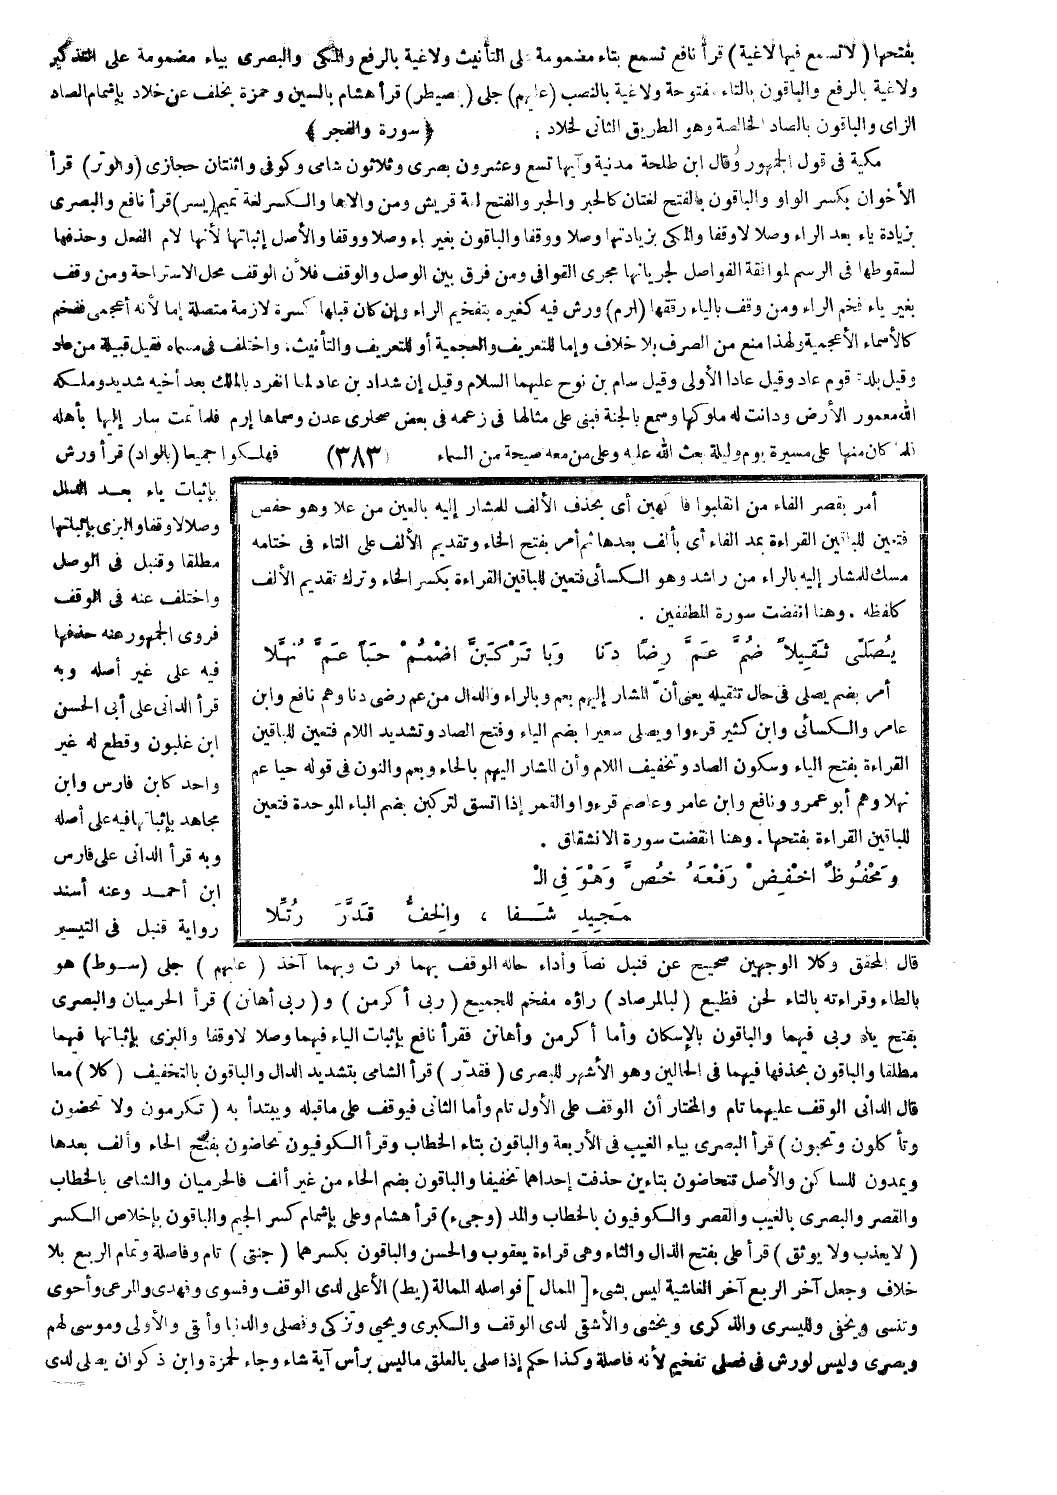 بفتحها ( لا تسمع فيها لاغية ) قرأ نافع تسمع بتاء مضمومة على التأنيث ولاغية بالرفع والمكى والبصرى بياء مضمومة على التذكير
ولاغية بالرفع والباقون بالتاء مفتوحة ولاغية بالنصب (عليهم) جلى ( بمصيطر) قرأ هشام بالسين وحمزة بخلف عن خلاد بإشمام الصاد
الزاى والباقون بالصاد الخالصة وهو الطريق الثانى لخلاد . ﴿ سورة والفجر ﴾
مكية فى قول الجمهور وقال ابن طلحة مدنية وآيها تسع وعشرون بصرى وثلاثون شامى وكوفى واثنتان حجازى (والوتر) قرأ
الأخوان بكسر الواو والباقون بالفتح لغتان كالحبر والحبر والفتح لغة قريش ومن والاها والكسر لغة تميم (يسر) قرأ نافع والبصرى
بزيادة ياء بعد الراء وصلا لا وقفا والمكى بزيادتها وصلا ووقفا والباقون بغير ياء وصلا ووقفا والأصل إثباتها لأنها لام الفعل وحذفها
لسقوطها فى الرسم لموافقة الفواصل لجريانها مجرى القوافى ومن فرق بين الوصل والوقف فلأن الوقف محل الاستراحة ومن وقف
بغير ياء فخم الراء ومن وقف بالياء رققها (إرم) ورش فيه كغيره بتفخيم الراء وإن كان قبلها كسرة لازمة متصلة إما لأنه أعجمى ففخم
كالأسماء الأعجمية ولهذا منع من الصرف بلا خلاف وإما للتعريف والعجمية أو للتعريف والتأنيث . واختلف فى مسماه فقيل قبيلة من عاد
وقيل بلدة قوم عاد وقيل عادا الأولى وقيل سام بن نوح عليهما السلام وقيل إن شداد بن عاد لما انفرد بالملك بعد أخيه شديد وملكه
الله معمور الأرض ودانت له ملوكها وسمع بالجنة فبنى على مثالها فى زعمه فى بعض صحارى عدن وسماها إرم فلما تمت سار إليها بأهله
فلما كان منها على مسيرة يوم وليلة بعث الله عليه وعلى من معه صيحة من السماء (٣٨٣) فهلكوا جميعا (بالواد) قرأ ورش
بإثبات ياء بعد الدال
وصلا لا وقفا والبزى بإثباتها
مطلقا وقنبل فى الوصل
واختلف عنه فى الوقف
فروى الجمهور عنه حذفها
فيه على غير أصله وبه
قرأ الدانى على أبى الحسن
ابن غلبون وقطع له غير
واحد كابن فارس وابن
مجاهد بإثباتها فيه على أصله
وبه قرأ الدانى على فارس
ابن أحمد وعنه أسند
رواية قنبل فى التيسير
أمر بقصر الفاء من انقلبوا فاكهين أى بحذف الألف للمشار إليه بالعين من علا وهو حفص
فتعين للباقين القراءة بمد الفاء أى بألف بعدها ثم أمر بفتح الخاء وتقديم الألف على التاء فى ختامه
مسك للمشار إليه بالراء من راشد وهو الكسائى فتعين للباقين القراءة بكسر الخاء وترك تقديم الألف
كلفظه . وهنا انقضت سورة المطففين .
يُصَلَّى ثَقِيلاً ضُمَّ عَمَّ رِضًا دَنَا وَبَا تَرْكَبَنَّ اضْمُمْ حَيًا عَمَّ نُهَّلَا
أمر بضم يصلى فى حال تثقيله يعنى أن المشار إليهم بعم وبالراء والدال من عم رضى دنا وهم نافع وابن
عامر والكسائى وابن كثير قرءوا ويصلى سعيرا بضم الياء وفتح الصاد وتشديد اللام فتعين للباقين
القراءة بفتح الياء وسكون الصاد وتخفيف اللام وأن المشار اليهم بالحاء وبعم والنون فى قوله حيا عم
نهلا وهم أبو عمرو ونافع وابن عامر وعاصم قرءوا والقمر إذا اتسق لتركبن بضم الباء الموحدة فتعين
للباقين القراءة بفتحها . وهنا انقضت سورة الانشقاق .
وَمَحْفُوظٌ اخْفِضْ رَفْعَهُ خُصَّ وَهْوَ فِى الْـ
ـمَجِيدِ شَفَا ، وَالْخِفُّ قَدَّرَ رُتِّلَا
قال المحقق وكلا الوجهين صحيح عن قنبل نصا وأداء حالة الوقف بهما قرأت وبهما آخذ ( عليهم ) جلى (سوط) هو
بالطاء وقراءته بالتاء لحن فظيع ( لبالمرصاد ) راؤه مفخم للجميع ( ربى أكرمن ) و ( ربى أهانن ) قرأ الحرميان والبصرى
بفتح ياء ربى فيهما والباقون بالإسكان وأما أكرمن وأهانن فقرأ نافع بإثبات الياء فيهما وصلا لا وقفا والبزى بإثباتها فيهما
مطلقا والباقون بحذفها فيهما فى الحالين وهو الأشهر للبصرى ( فقدّر ) قرأ الشامى بتشديد الدال والباقون بالتخفيف ( كلا ) معا
قال الدانى الوقف عليهما تام والمختار أن الوقف على الأول تام وأما الثانى فيوقف على ماقبله ويبتدأ به ( تكرمون ولا تحضون
وتأكلون وتحبون ) قرأ البصرى بياء الغيب فى الأربعة والباقون بتاء الخطاب وقرأ الكوفيون تحاضون بفتح الحاء وألف بعدها
ويمدون للساكن والأصل تتحاضون بتاءين حذفت إحداهما تخفيفا والباقون بضم الحاء من غير ألف فالحرميان والشامى بالخطاب
والقصر والبصرى بالغيب والقصر والكوفيون بالخطاب والمد (وجىء) قرأ هشام وعلى بإشمام كسر الجيم والباقون بإخلاص الكسر
( لا يعذب ولا يوثق ) قرأ على بفتح الذال والثاء وهى قراءة يعقوب والحسن والباقون بكسرهما ( جنتى ) تام وفاصلة وتمام الربع بلا
خلاف وجعل آخر الربع آخر الغاشية ليس بشىء [ الممال ] فواصله الممالة (يط) الأعلى لدى الوقف وفسوى وفهدى والمرعى وأحوى
وتنسى ويخفى ولليسرى والذكرى ويخشى والأشقى لدى الوقف والكبرى ويحيى وتزكى وفصلى والدنيا وأبقى والأولى وموسى لهم
وبصرى وليس لورش فى فصلى تفخيم لأنه فاصلة وكذا حكم إذا صلى بالعلق ماليس برأس آية شاء وجاء لحمزة وابن ذكوان يصلى لدى